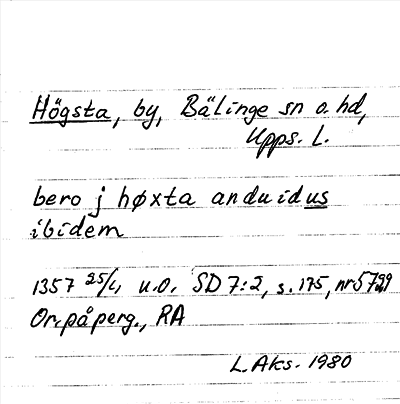 Högsta, by, Bälinge sn o. hd,
Upps. L.
bero j høxta anduidus
ibidem
1357 25/4 u.o. SD 7:2, s. 175, nr 5799
Or. på perg., RA
L. Aks. 1980